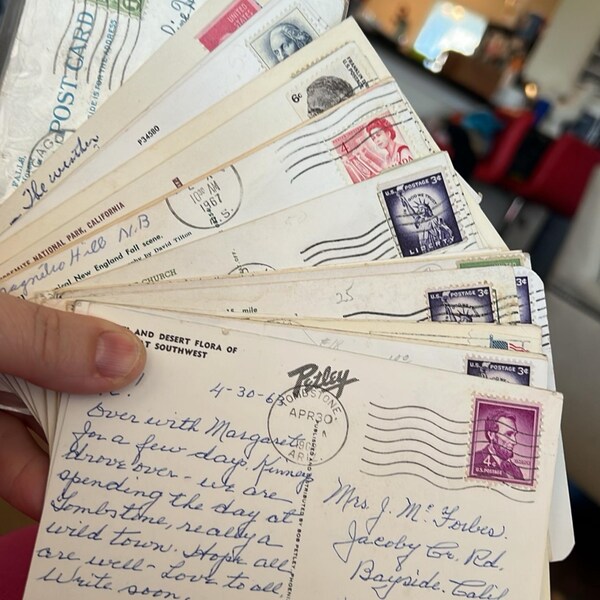 POST CARD
THE ADDRESS
UNITED
P34580
The weather
6c
10 AM
1967
YOSEMITE NATIONAL PARK, CALIFORNIA
Magnetic Hill N.B
New England Fall scene.
by David Tilton
4
U.S. POSTAGE 3¢
LIBERTY
CHURCH
25
mile
U.S. POSTAGE 3¢
3¢
U.S. POSTAGE 3¢
AND DESERT FLORA OF
SOUTHWEST
Petley
4-30-63
TOMBSTONE
APR 30
Over with Margaret
for a few days. Kinneys
drove over - we are
spending the day at
Tombstone, really a
wild town. Hope all
are well - Love to all.
Write soon
4¢
U.S. POSTAGE
Mrs J. Mc Forbes.
Jacoby Cr. Rd.
Bayside. Calif